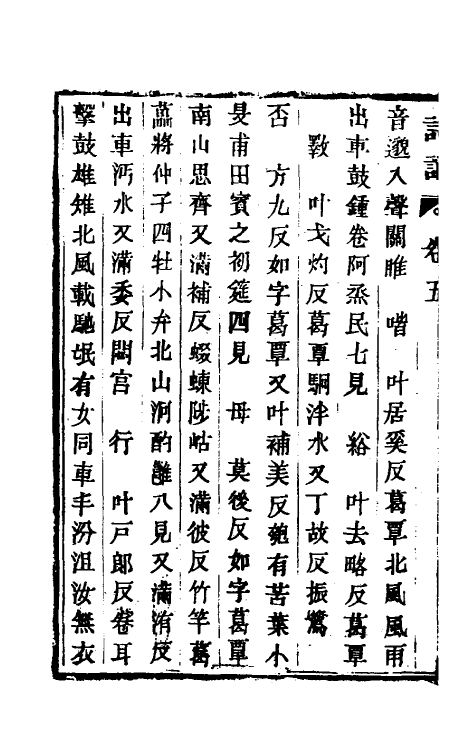 卷五
音邈入聲關雎　喈　叶居奚反葛覃北風風雨
出車鼓鍾卷阿烝民七見　綌　叶去略反葛覃
斁　叶弋灼反葛覃駉泮水又丁故反振鷺
否　方九反如字葛覃又叶補美反匏有苦葉小
旻甫田賓之初筵四見　母　莫後反如字葛覃
南山思齊又滿補反蝃蝀陟岵又滿彼反竹竿葛
藟將仲子四牡小弁北山泂酌雝八見又滿洧反
出車沔水又滿委反閟宮　行　叶戸郎反卷耳
擊鼓雄雉北風載馳氓有女同車丰汾沮汝無衣